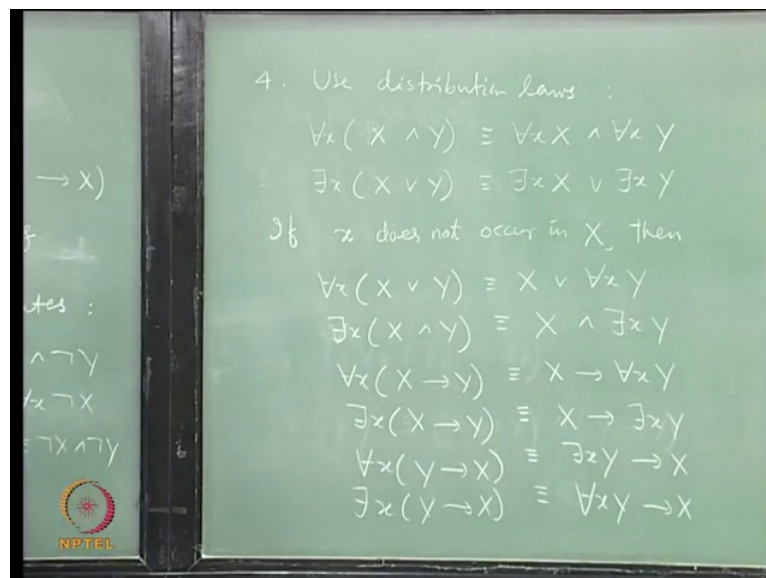 → X)
tes :
∧ ¬Y
∀x ¬X
≡ ¬X ∧ ¬Y
4. Use distribution laws :
∀x ( X ∧ Y) ≡ ∀x X ∧ ∀x Y
∃x ( X ∨ Y) ≡ ∃x X ∨ ∃x Y
If x does not occur in X, then
∀x ( X ∨ Y) ≡ X ∨ ∀x Y
∃x ( X ∧ Y) ≡ X ∧ ∃x Y
∀x ( X → Y) ≡ X → ∀x Y
∃x ( X → Y) ≡ X → ∃x Y
∀x ( Y → X) ≡ ∃x Y → X
∃x ( Y → X) ≡ ∀x Y → X
NPTEL